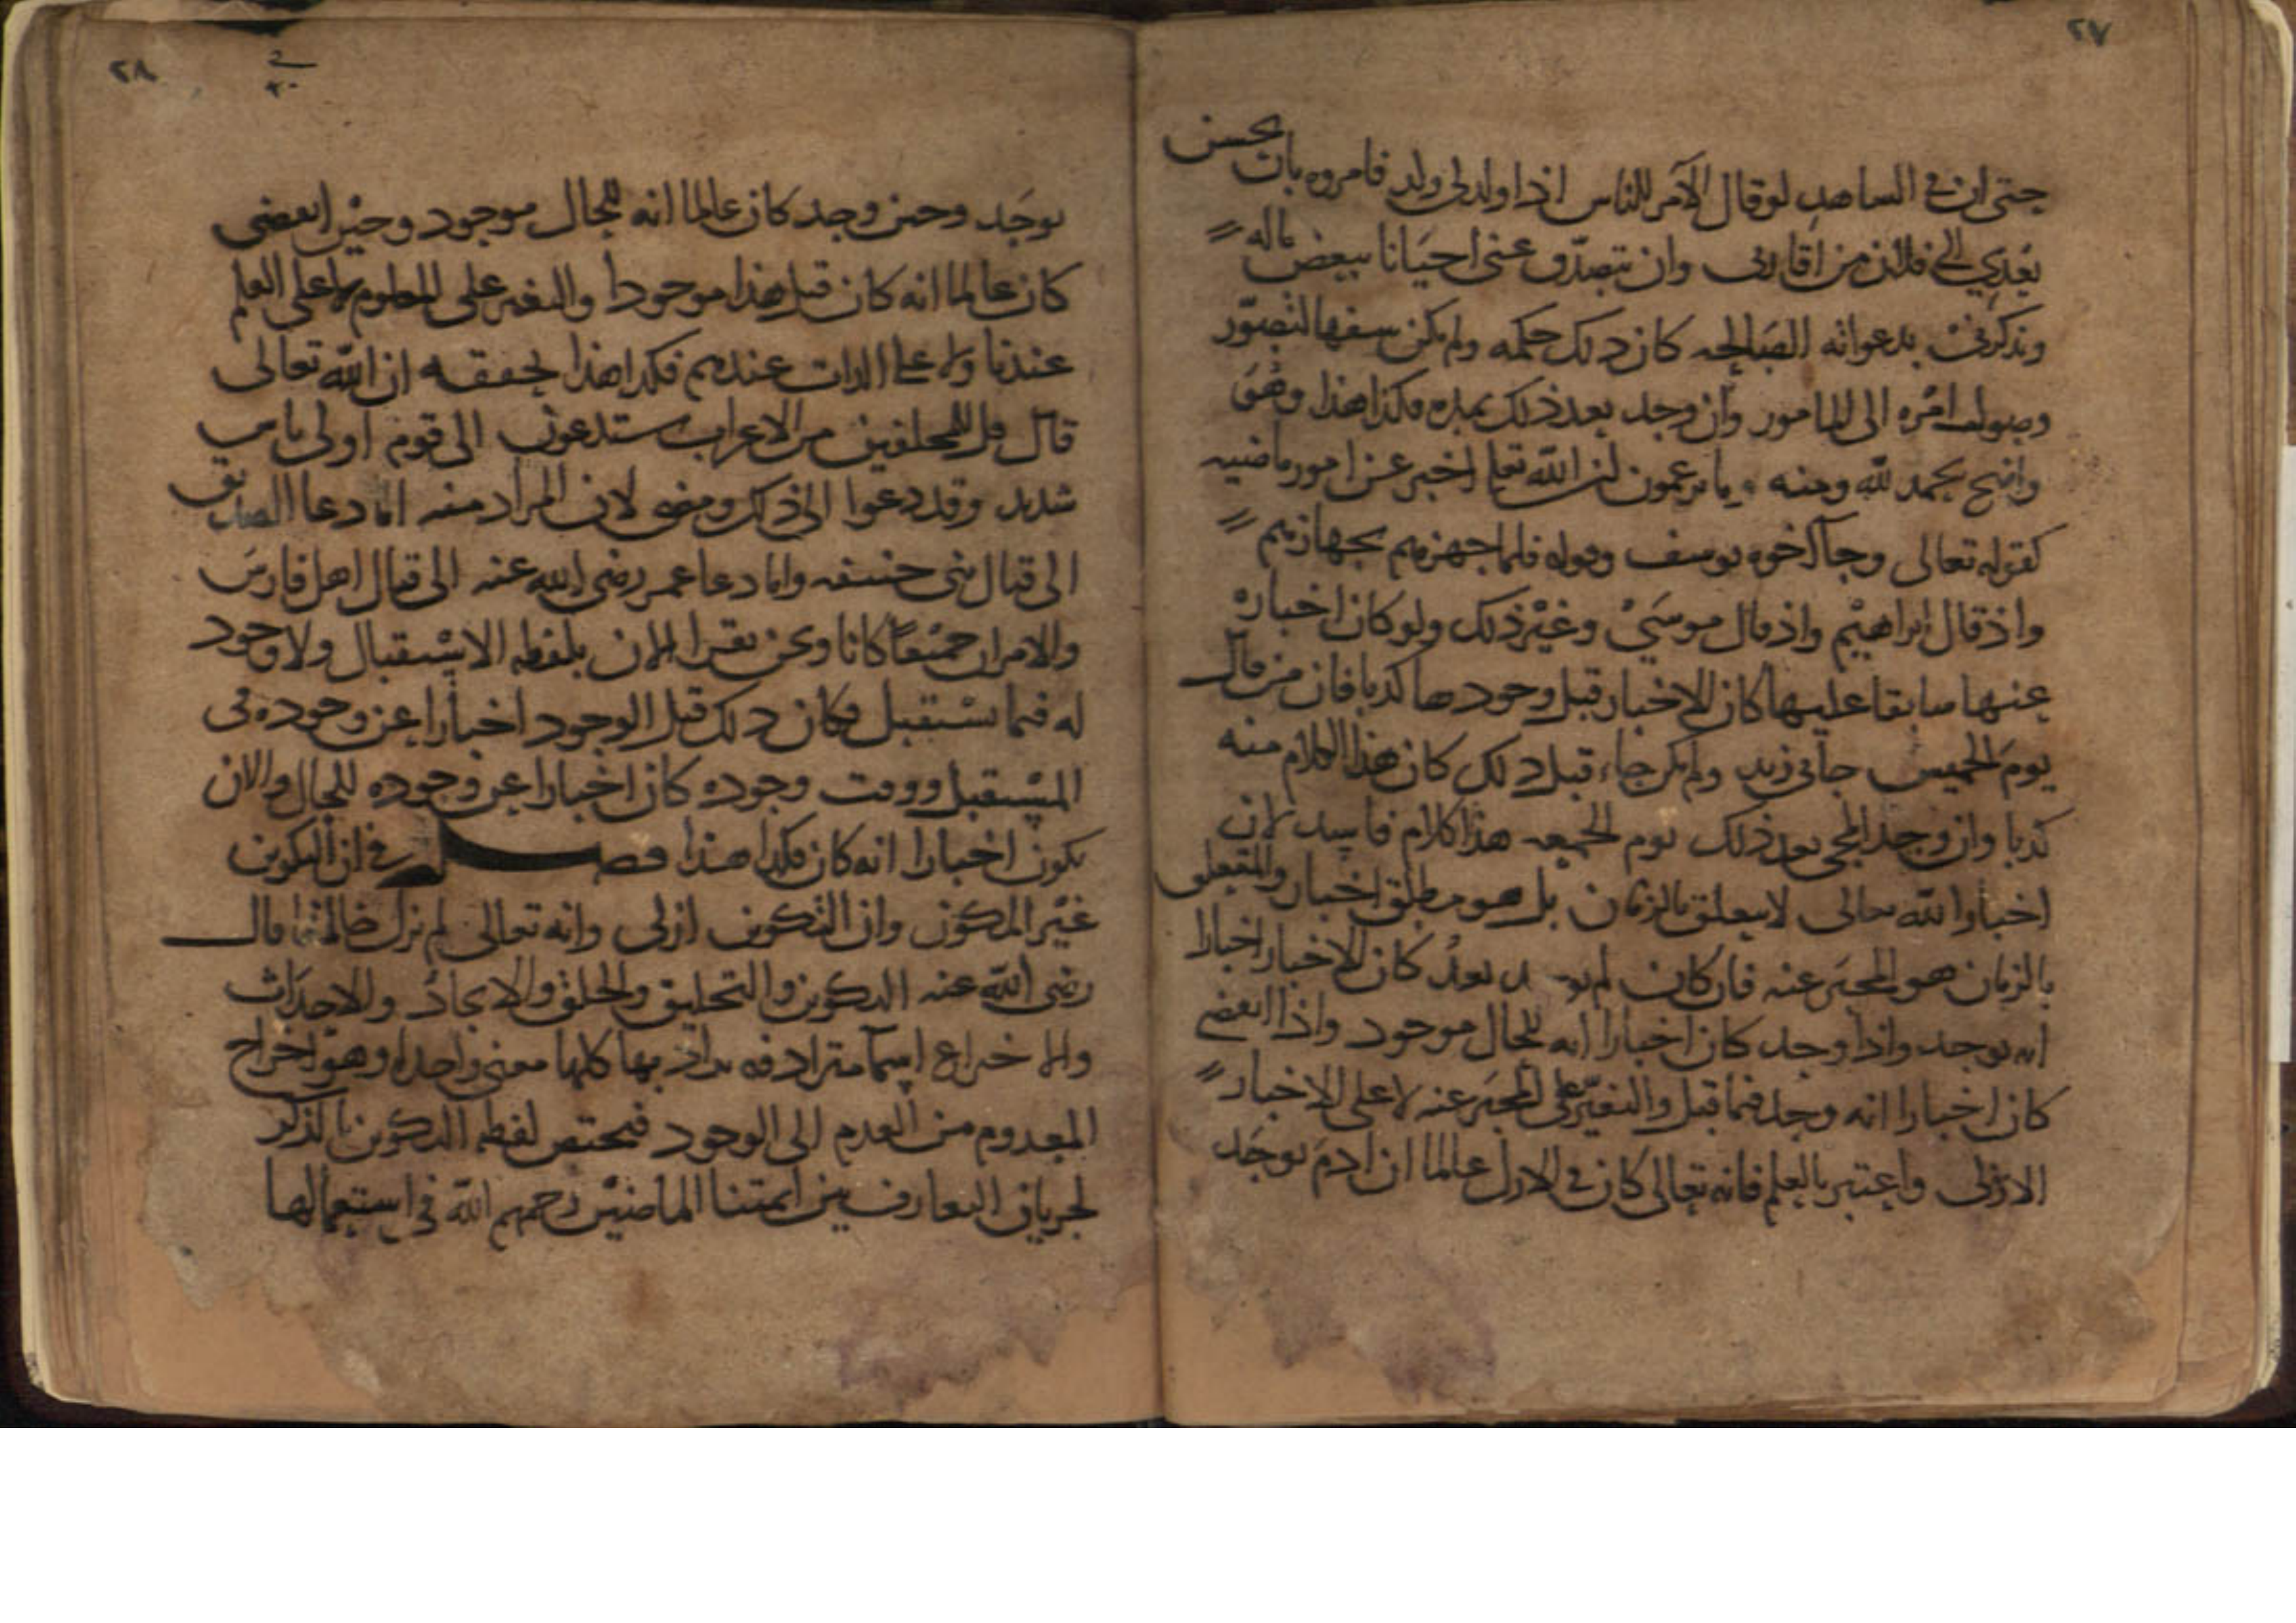 ٢٧
حتى ان في الساهد لو قال الآمر للناس اذا ولد لى ولد فامروه بان يحسن
بعدي الى فلان من اقاربى وان يتصدّق عنى احيانا ببعض ماله
ويذكرنى بدعواته الصالحه كان ذلك حكمه ولم يكن سفها لتصوّر
وصول امره الى المامور وان وجد بعد ذلك بمده فكذا هذا وهو
واضح بحمد لله ومنه يا يزعمون ان الله تعا اخبر عن امور ماضيه
كقوله تعالى وجآ اخوه يوسف وقوله فلما جهزهم بجهازهم
واذ قال ابراهيم واذ قال موسى وغير ذلك ولو كان اخباره
عنها سابقا عليها كان الاخبار قبل وجودها كذبا فان من قال
يوم الخميس جانى زيد ولم يكن جاء قبل ذلك كان هذا الكلام منه
كذبا وان وجد المجى بعد ذلك يوم الجمعه هذا كلام فاسد لان
اخبار الله تعالى لا يتعلق بالزمان بل هو مطلق اخبار والمتعلق
بالزمان هو المخبر عنه فان كان لم يوجد بعد كان الاخبار اخبارا
انه يوجد واذا وجد كان اخبارا انه للحال موجود واذا انقضى
كان اخبارا انه وجد فيما قبل والتغيّر على المخبر عنه لا على الاخبار
الازلى واعتبر بالعلم فانه تعالى كان في الازل عالما ان ادم يوجد
٢٨
يوجد وحين وجد كان عالما انه للحال موجود وحين انقضى
كان عالما انه كان قبل هذا موجودا والتغير على المعلوم لا على العلم
عندنا ولا على الذات عندهم فكذا هذا يحققه ان الله تعالى
قال قل للمخلفين من الاعراب ستدعون الى قوم اولى باس
شديد وقد دعوا الى ذلك ومضى لان المراد منه اما دعا الصديق
الى قتال بنى حنيفه واما دعا عمر رضى الله عنه الى قتال اهل فارس
والامران جميعا كانا ونحن نقرا الان بلفظه الاستقبال ولا وجود
له فيما يستقبل فكان ذلك قبل الوجود اخبارا عن وجوده فى
المستقبل ووقت وجوده كان اخبارا عن وجوده للحال والان
يكون اخبارا انه كان فكذا هذا فصل في ان التكوين
غير المكون وان التكوين ازلى وانه تعالى لم يزل خالقا قال
رضى الله عنه التكوين والتخليق والخلق والايجاد والاحداث
والاختراع اسمآ مترادفه يراد بها كلها معنى واحد وهو اخراج
المعدوم من العدم الى الوجود فيختص لفظه التكوين بالذكر
لجريان التعارف بين ايمتنا الماضين رحمهم الله في استعمالها